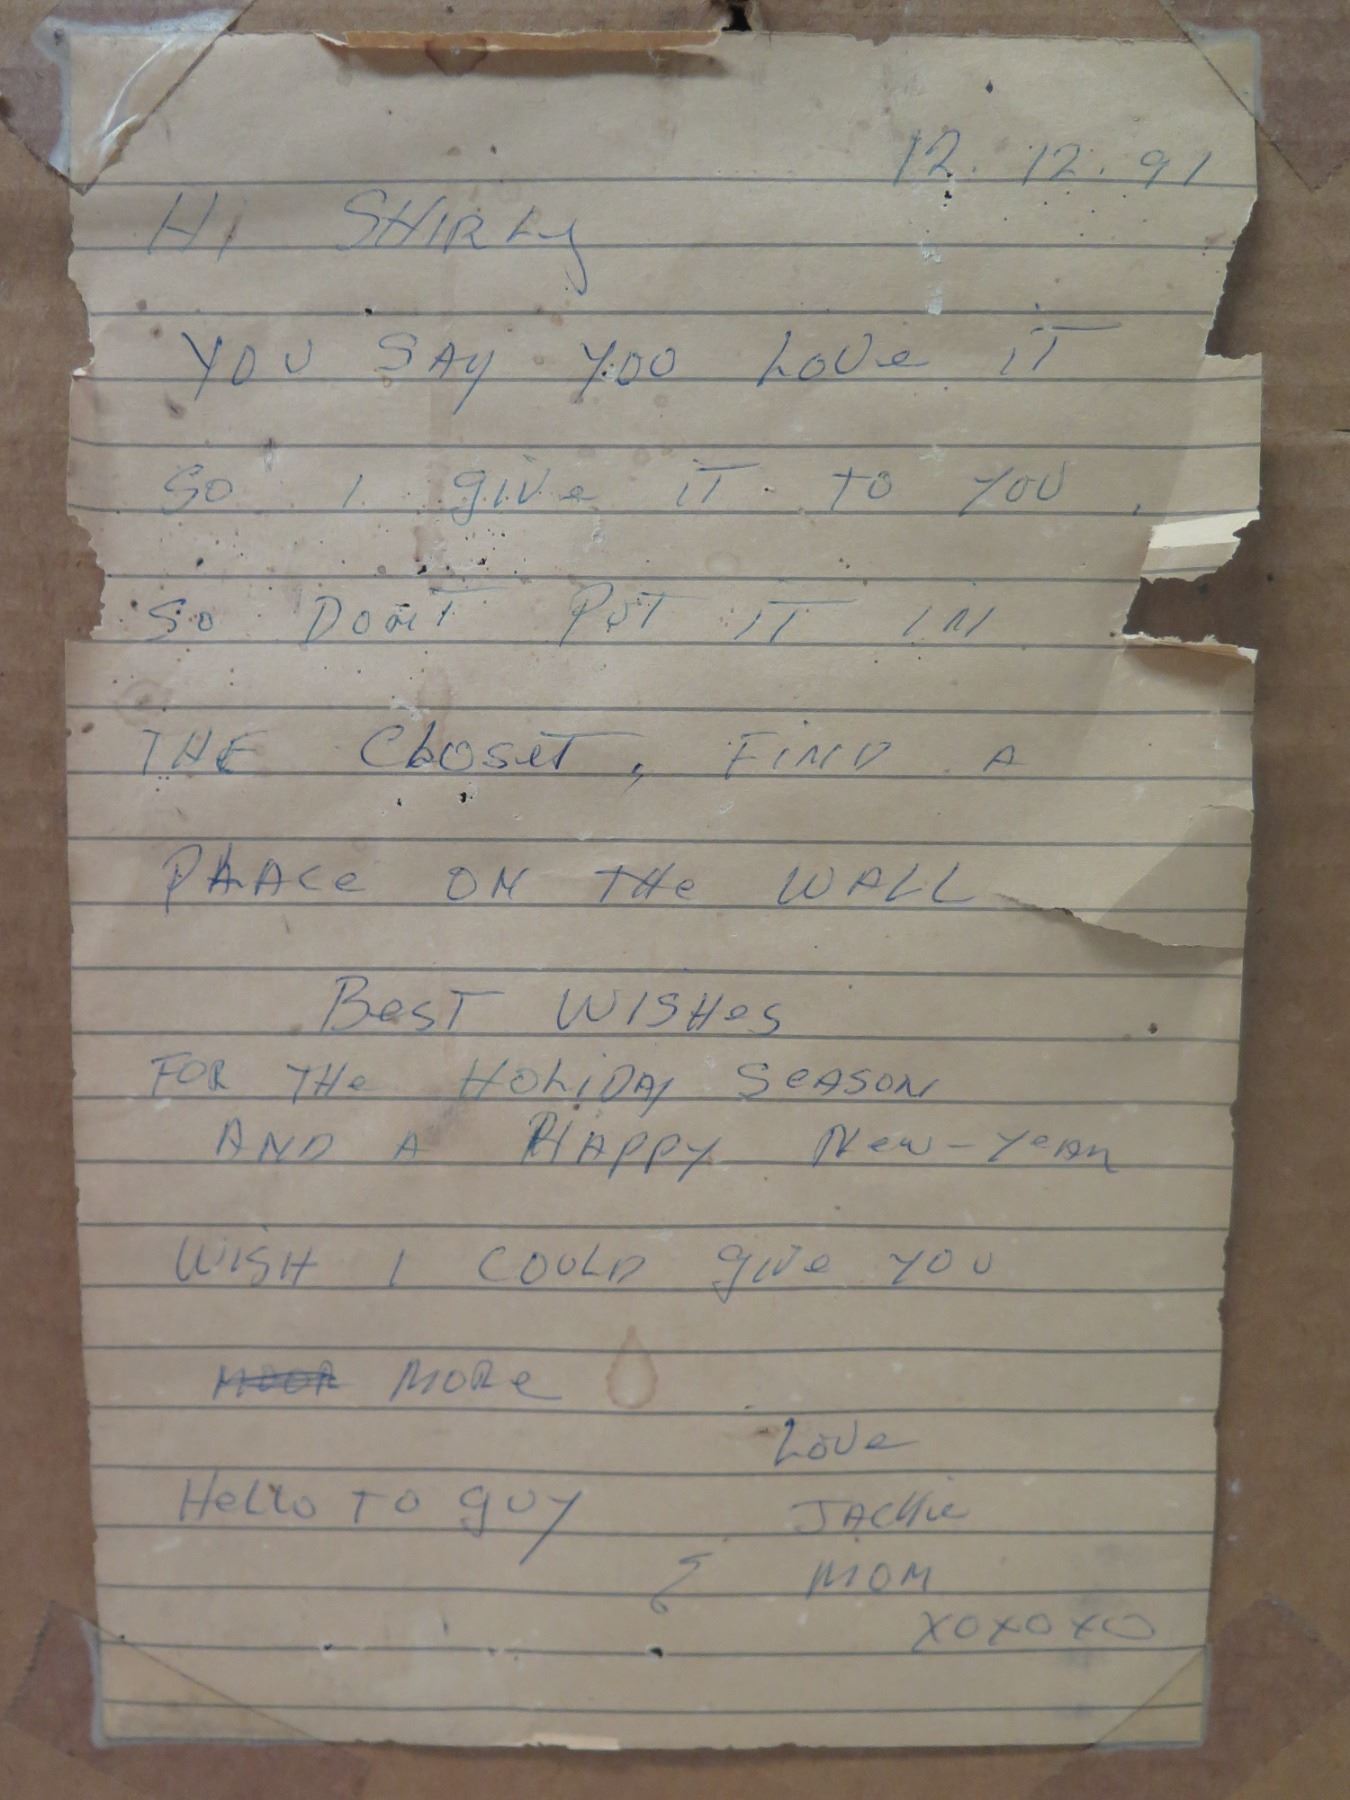 12.12.91
Hi SHIRLy
YOU SAY YOU LOVe iT
SO I giVe iT TO YOU,
SO DONT PUT IT IN
THE CLoseT, FIND A
PLACe ON THe WALL
BesT WISHes
FOR THe HOLIDAY SeASON
AND A HAPPY New-YeAR
WISH I COULD giVe YOU
MOOR MORe
LOVe
HeLLo TO guy JACKie
& MOM
XOXOXO